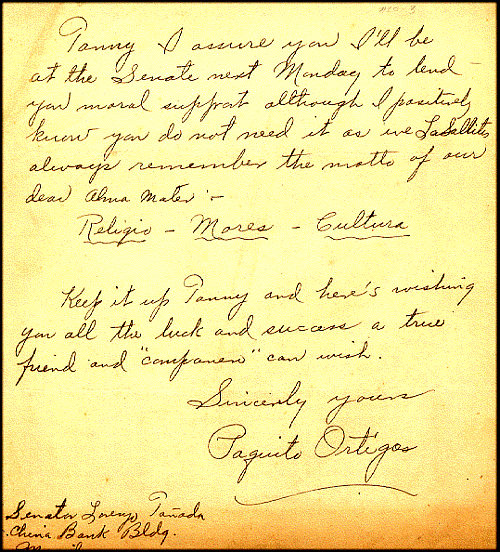 Tanny I assure you I'll be
at the Senate next Monday to lend
you moral support although I positively
know you do not need it as we LaSallites
always remember the motto of our
dear Alma Mater:-
Religio - Mores - Cultura
Keep it up Tanny and here's wishing
you all the luck and success a true
friend and "companero" can wish.
Sincerly yours
Paquito Ortigas
Senator Lorenzo Tañada
China Bank Bldg.
Manila